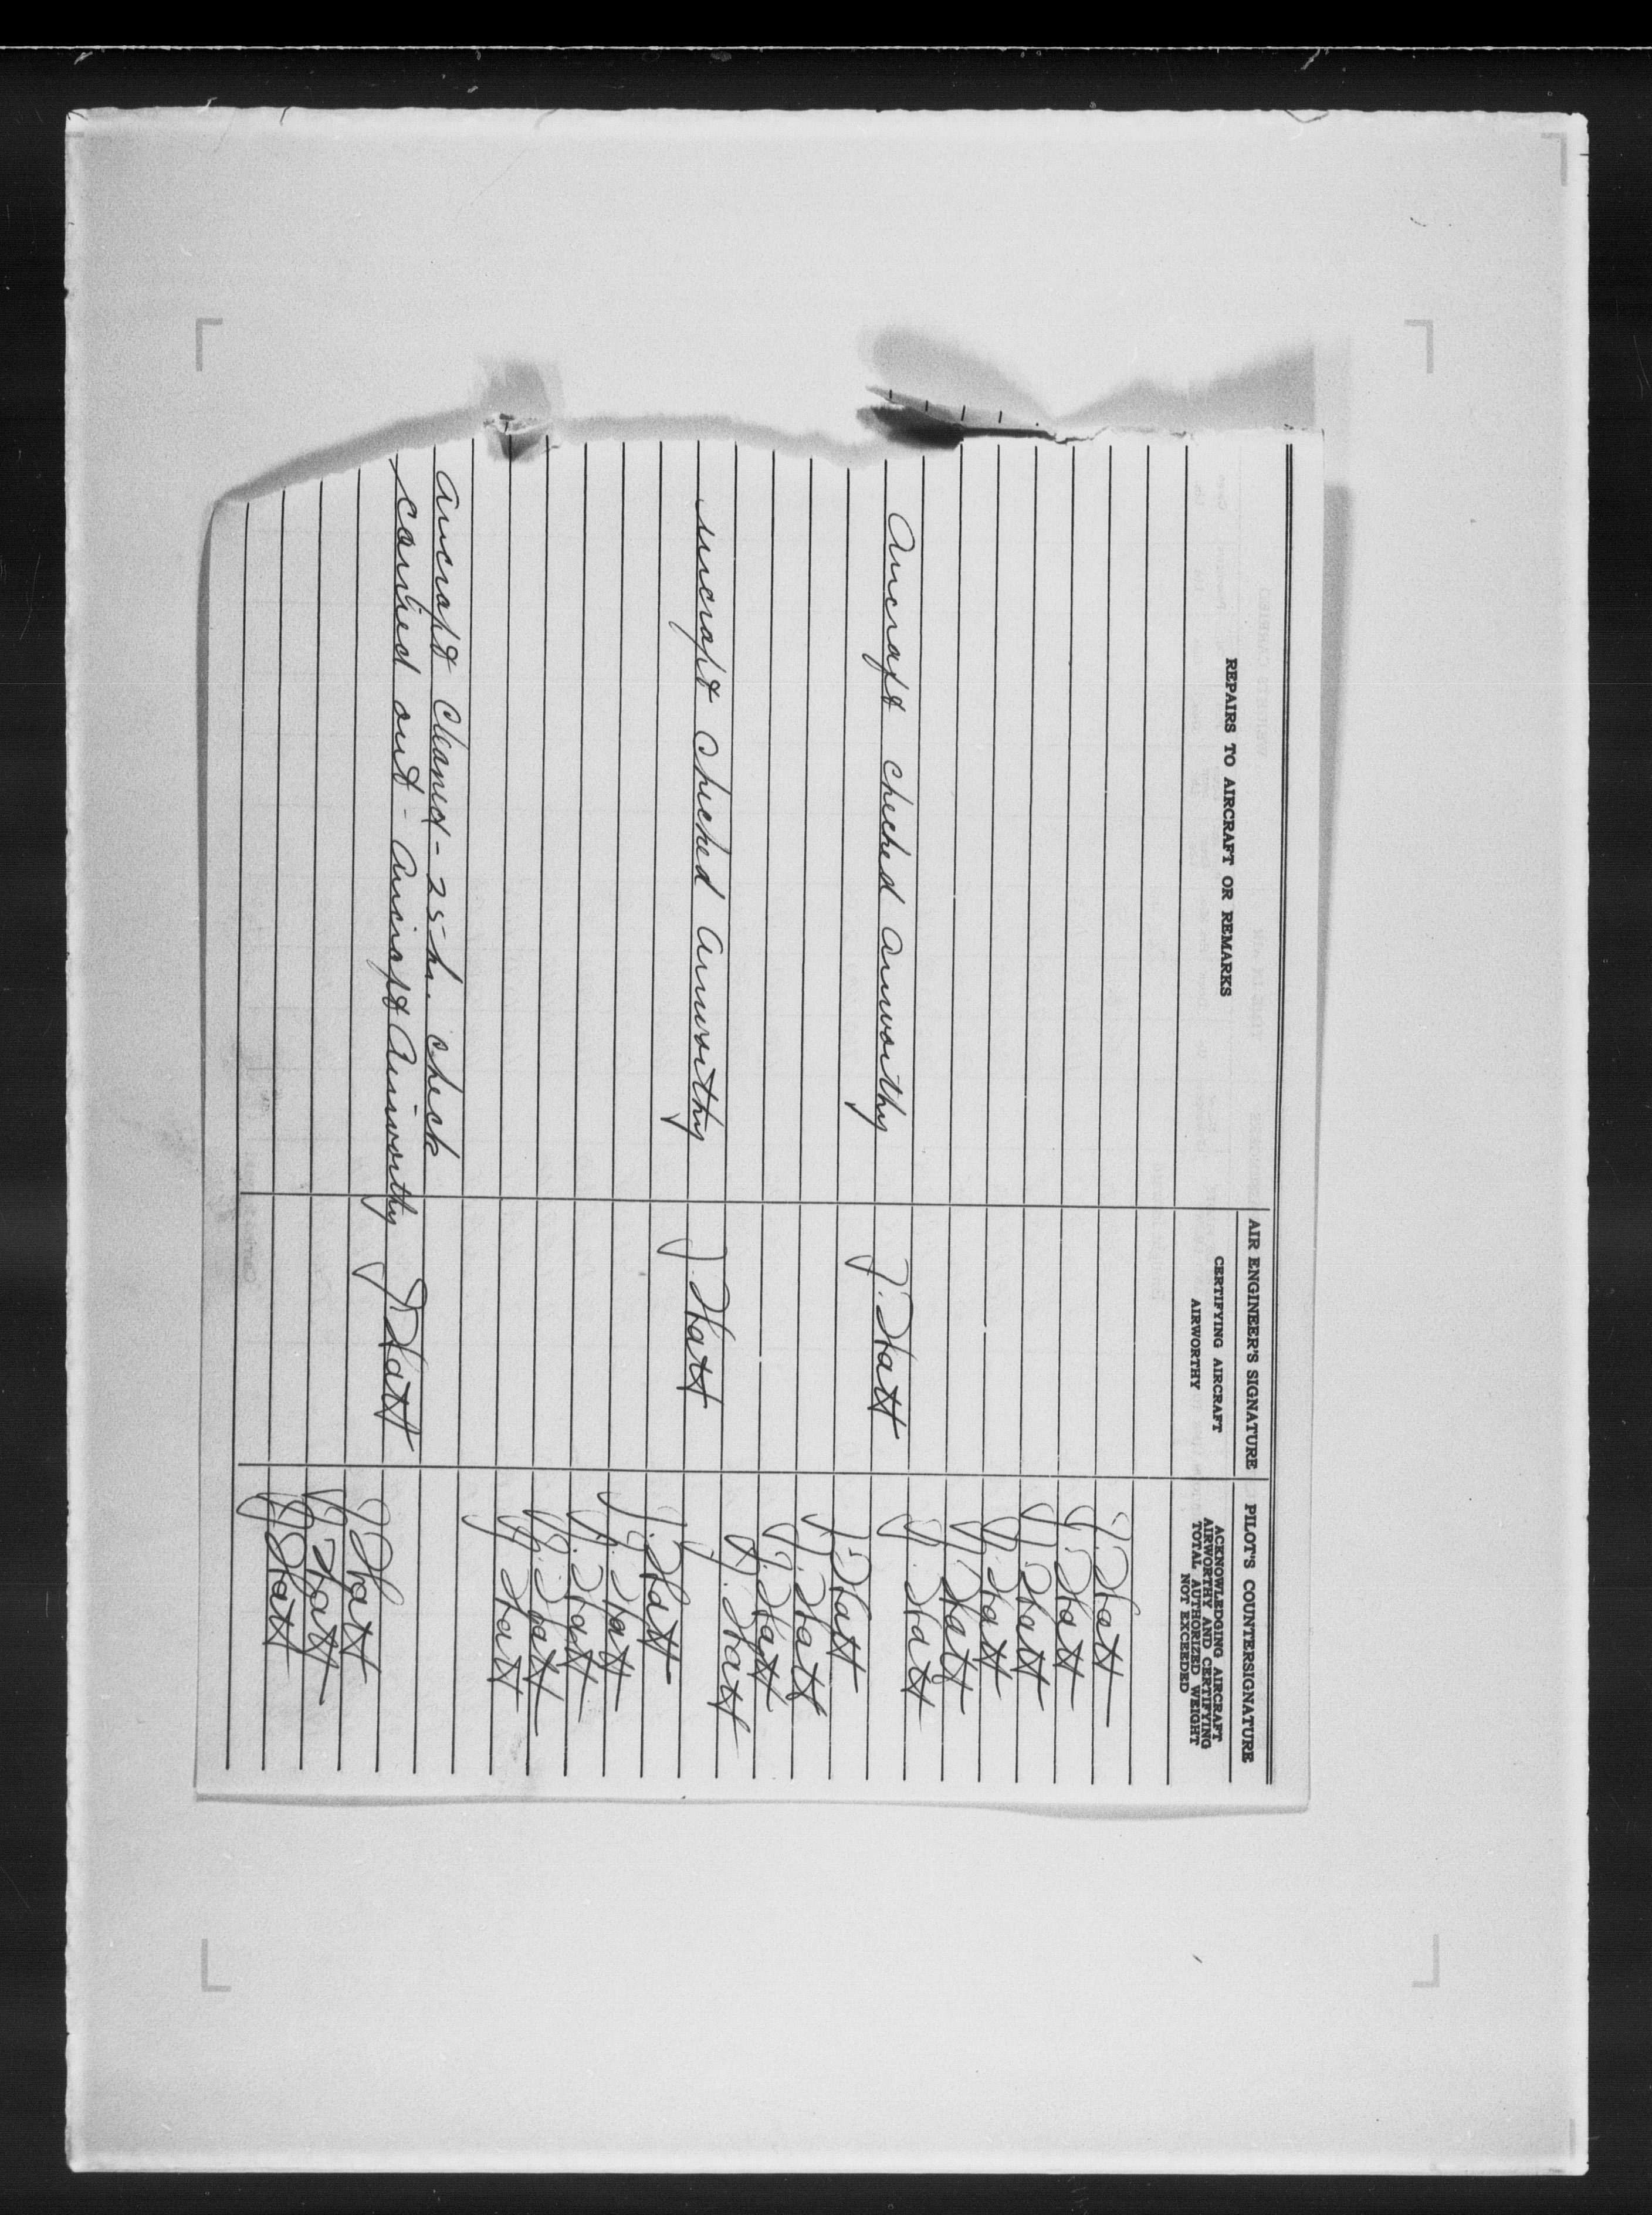 REPAIRS TO AIRCRAFT OR REMARKS
AIR ENGINEER'S SIGNATURE
CERTIFYING AIRCRAFT
AIRWORTHY
PILOT'S COUNTERSIGNATURE
ACKNOWLEDGING AIRCRAFT
AIRWORTHY AND CERTIFYING
TOTAL AUTHORIZED WEIGHT
NOT EXCEEDED
J. Hatt
J. Hatt
J. Hatt
J. Hatt
J. Hatt
J. Hatt
Aircraft checked airworthy J. Hatt
J. Hatt
J. Hatt
J. Hatt
J. Hatt
aircraft checked airworthy J. Hatt
J. Hatt
J. Hatt
J. Hatt
J. Hatt
J. Hatt
Aircraft cleaned - 25 hr. check
carried out - aircraft airworthy J Hatt
J Hatt
J Hatt
J Hatt